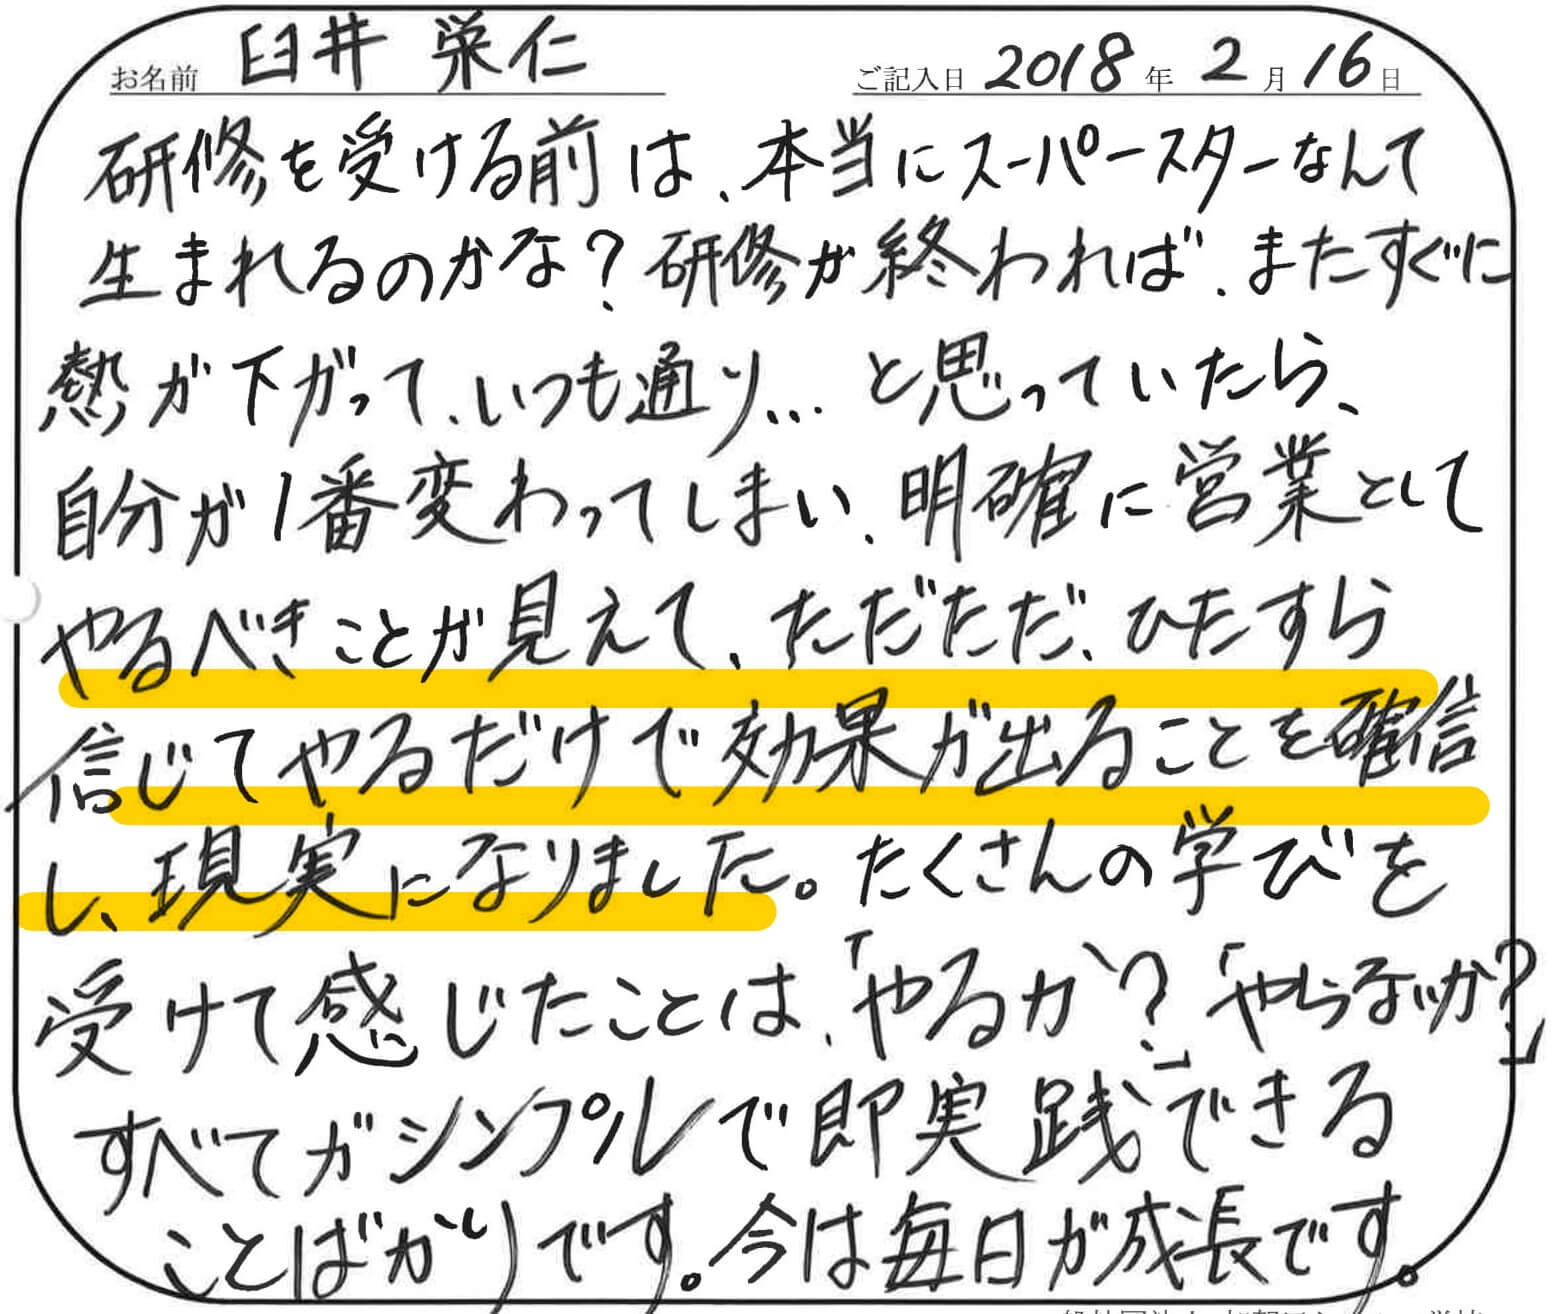 お名前 臼井 栄仁 ご記入日 2018年 2月 16日
研修を受ける前は、本当にスーパースターなんて
生まれるのかな？研修が終われば、またすぐに
熱が下がって、いつも通り… と思っていたら、
自分が1番変わってしまい、明確に営業として
やるべきことが見えて、ただただ、ひたすら
信じてやるだけで効果が出ることを確信
し、現実になりました。たくさんの学びを
受けて感じたことは、「やるか？」「やらないか？」
すべてがシンプルで即実践できる
ことばかりです。今は毎日が成長です。